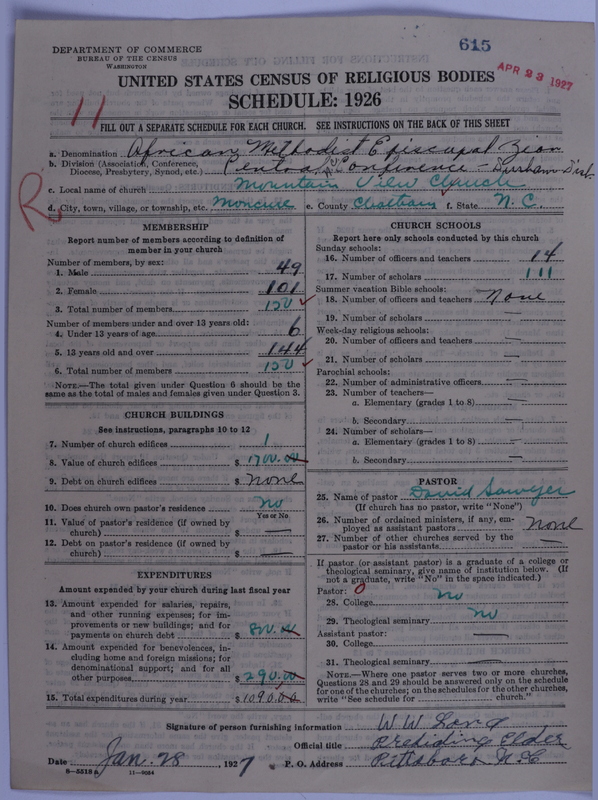 615
APR 23 1927
DEPARTMENT OF COMMERCE
BUREAU OF THE CENSUS
WASHINGTON
UNITED STATES CENSUS OF RELIGIOUS BODIES
SCHEDULE: 1926
11
FILL OUT A SEPARATE SCHEDULE FOR EACH CHURCH. SEE INSTRUCTIONS ON THE BACK OF THIS SHEET
a. Denomination African Methodist Episcopal Zion
b. Division (Association, Conference, Diocese, Presbytery, Synod, etc.) Central Conference - Durham Dist.
c. Local name of church Mountain View Church
R
d. City, town, village, or township, etc. Moncure e. County Chatham f. State N. C.
MEMBERSHIP
Report number of members according to definition of
member in your church
Number of members, by sex:
1. Male 49
2. Female 101
3. Total number of members 150
Number of members under and over 13 years old:
4. Under 13 years of age 6
5. 13 years old and over 144
6. Total number of members 150
NOTE.—The total given under Question 6 should be the
same as the total of males and females given under Question 3.
CHURCH BUILDINGS
See instructions, paragraphs 10 to 12
7. Number of church edifices 1
8. Value of church edifices $ 1700.00
9. Debt on church edifices $ None
10. Does church own pastor's residence no
Yes or No
11. Value of pastor's residence (if owned by
church) $ —
12. Debt on pastor's residence (if owned by
church) $ —
EXPENDITURES
Amount expended by your church during last fiscal year
13. Amount expended for salaries, repairs,
and other running expenses; for im-
provements or new buildings; and for
payments on church debt $ 800.00
14. Amount expended for benevolences, in-
cluding home and foreign missions; for
denominational support; and for all
other purposes $ 290.00
15. Total expenditures during year $ 1090.00
CHURCH SCHOOLS
Report here only schools conducted by this church
Sunday schools:
16. Number of officers and teachers 14
17. Number of scholars 111
Summer vacation Bible schools:
18. Number of officers and teachers None
19. Number of scholars —
Week-day religious schools:
20. Number of officers and teachers —
21. Number of scholars —
Parochial schools:
22. Number of administrative officers —
23. Number of teachers—
a. Elementary (grades 1 to 8) —
b. Secondary —
24. Number of scholars—
a. Elementary (grades 1 to 8) —
b. Secondary —
PASTOR
25. Name of pastor David Sawyer
(If church has no pastor, write "None")
26. Number of ordained ministers, if any, em-
ployed as assistant pastors None
27. Number of other churches served by the
pastor or his assistants —
If pastor (or assistant pastor) is a graduate of a college or
theological seminary, give name of institution below. (If
not a graduate, write "No" in the space indicated.)
Pastor: 0
28. College no
29. Theological seminary no
Assistant pastor:
30. College —
31. Theological seminary —
NOTE.—Where one pastor serves two or more churches,
Questions 28 and 29 should be answered only on the schedule
for one of the churches; on the schedules for the other churches,
write "See schedule for church."
Signature of person furnishing information W W Long
Official title Presiding Elder
Date Jan. 28, 1927 P. O. Address Pittsboro N.C
8—5518 a 11—9084